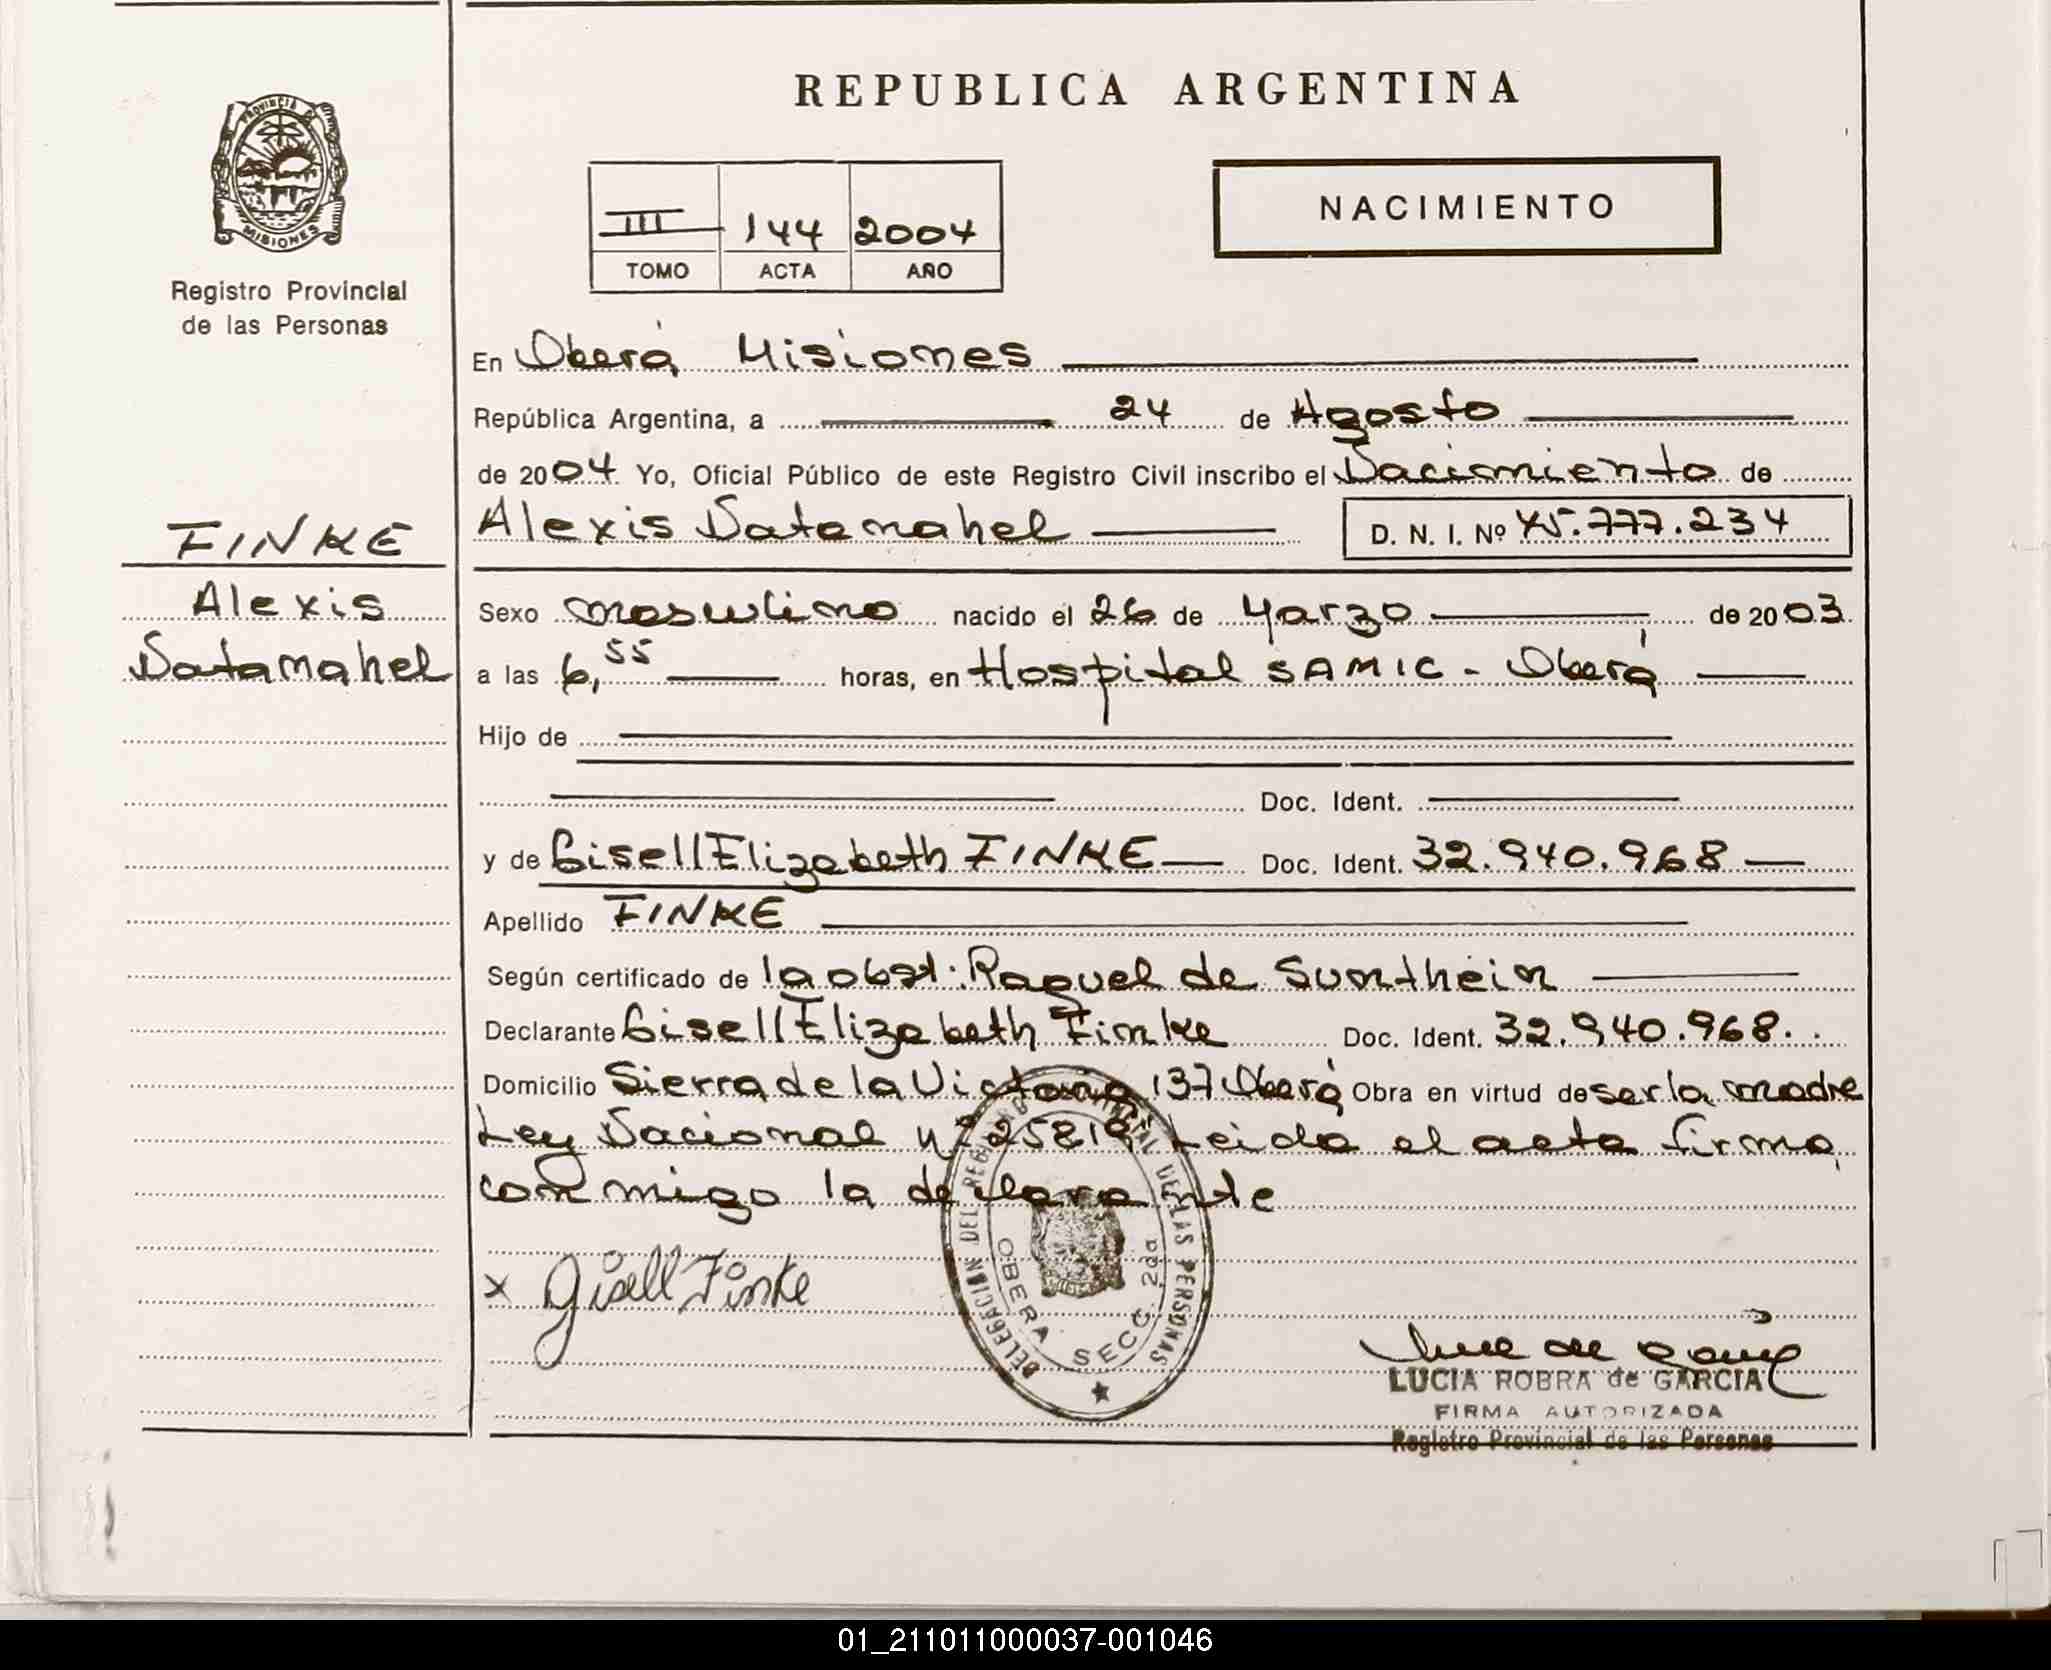 REPUBLICA ARGENTINA
PROVINCIA DE
MISIONES
Registro Provincial
de las Personas
III 144 2004
TOMO ACTA AÑO
NACIMIENTO
En Oberá Misiones
República Argentina, a 24 de Agosto
de 2004 Yo, Oficial Público de este Registro Civil inscribo el Nacimiento de
Alexis Natanahel D. N. I. Nº 45.777.234
FINKE
Alexis
Natanahel
Sexo masculino nacido el 26 de Marzo de 2003.
a las 6,55 horas, en Hospital SAMIC - Oberá
Hijo de
Doc. Ident.
y de Gisell Elizabeth FINKE Doc. Ident. 32.940.968
Apellido FINKE
Según certificado de la obst: Raquel de Sunthein
Declarante Gisell Elizabeth Finke Doc. Ident. 32.940.968.
Domicilio Sierra de la Victoria 137 Oberá Obra en virtud de ser la madre
Ley Nacional Nº 25819. Leida el acta firma
conmigo la declarante
x Gisell Finke
DELEGACION DEL REGISTRO PROVINCIAL DE LAS PERSONAS
OBERA SECC. 2da
LUCIA ROBRA de GARCIA
FIRMA AUTORIZADA
Registro Provincial de las Personas
01_211011000037-001046